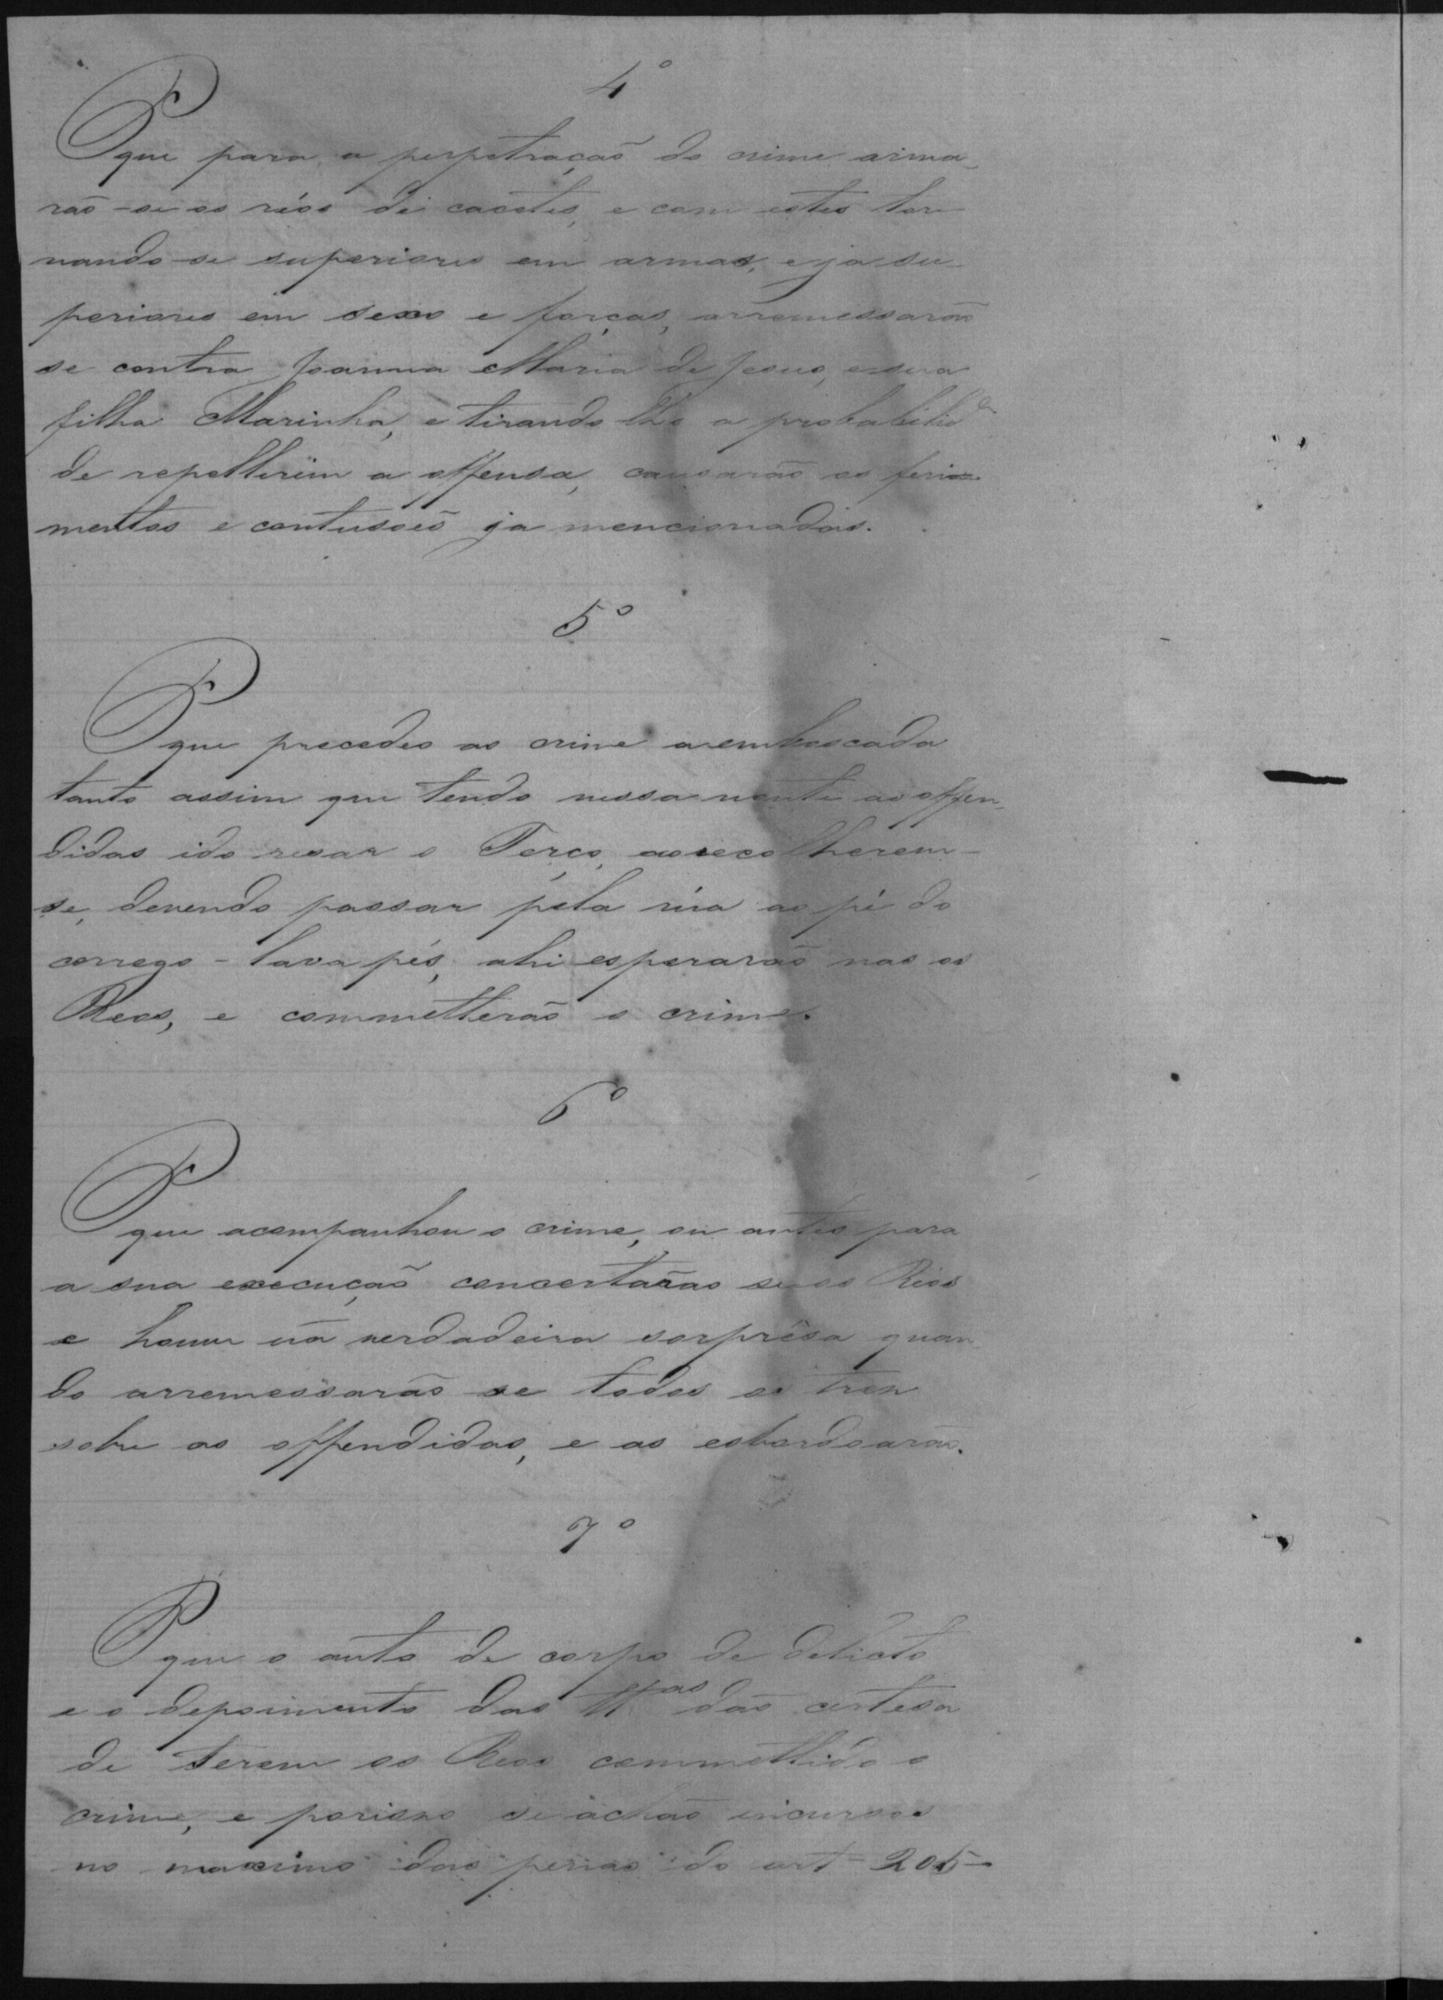 4º
P que para a perpetração do crime arma-
rão-se os réos de cacetes, e com estes tor
nando-se superiores em armas, e ja su-
periores em sexo e forças, arremessarão
se contra Joanna Maria de Jesus, e sua
filha Marinha, e tirando-lhe a probabilid.e
de repellirem a offensa, causarão os feri-
mentos e contusoẽs ja mencionados.
5º
P que precedeo ao crime a emboscada
tanto assim que tendo nessa noute as offen-
didas ido resar o Terço, ao recolherem-
se, devendo passar pela rua ao pé do
corrego-lava pés, ahi esperarão nas os
Reos, e commetterão o crime.
6º
P que acompanhou o crime, ou antes para
a sua execução concertarão se os Réos
e houve uã verdadeira sorprêsa quan-
do arremessarão se todos os tres
sobre as offendidas, e as esbordoarão.
7º
P que o auto de corpo de delicto
e o depoimento das ttas dão certesa
de terem os Reos commettido o
crime, e porisso se achão incursos
no maximo das penas do art 205-